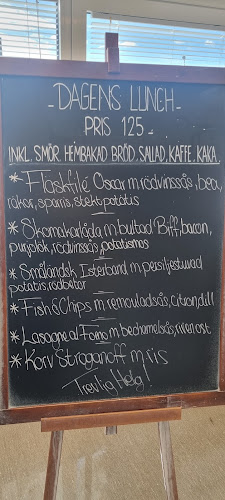 - DAGENS LUNCH -
- PRIS 125 -
INKL. SMÖR, HEMBAKAD BRÖD, SALLAD, KAFFE, KAKA.
* Fläskfilé Oscar m. rödvinssås, bea,
räkor, sparris, stekt potatis
* Skomakarlåda m. bultad Biff, bacon,
purjolök, rödvinssås, potatismos
* Småländsk Isterband m. persiljestuvad
potatis, rödbetor
* Fish & Chips m. remouladsås, citron, dill
* Lasagne al-Forno m. bechamelsås, riven ost
* Korv Stroganoff m. ris
Trevlig Helg!